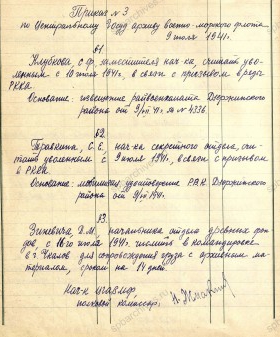 Приказ № 3
по Центральному Госуд архиву военно-морского флота
9 июля 1941г.
§1.
Клубкова, С.Ф. заместителя нач-ка, считать уво-
ленным с 10 июля 1941г., в связи с призывом в ряды
РККА.
Основание: извещение райвоенкомата Дзержинского
района от 9/VII 41г. за № 4336.
§2.
Травкина, С.Е. нач-ка секретного отдела, счи-
тать уволенным с 9 июля 1941г. в связи с призывом
в РККА
Основание: мобилизац. удостоверение РВК Дзержинского
района от 9/VII 1941.
§3.
Зиневича, Д.М. начальника отдела древних фон-
дов, с 16го июля 1941г. числить в командировке
в г. Чкалов для сопровождения груза с архивным ма-
териалом, сроком на 14 дней.
Нач-к ЦГАВМФ
полковой комиссар: